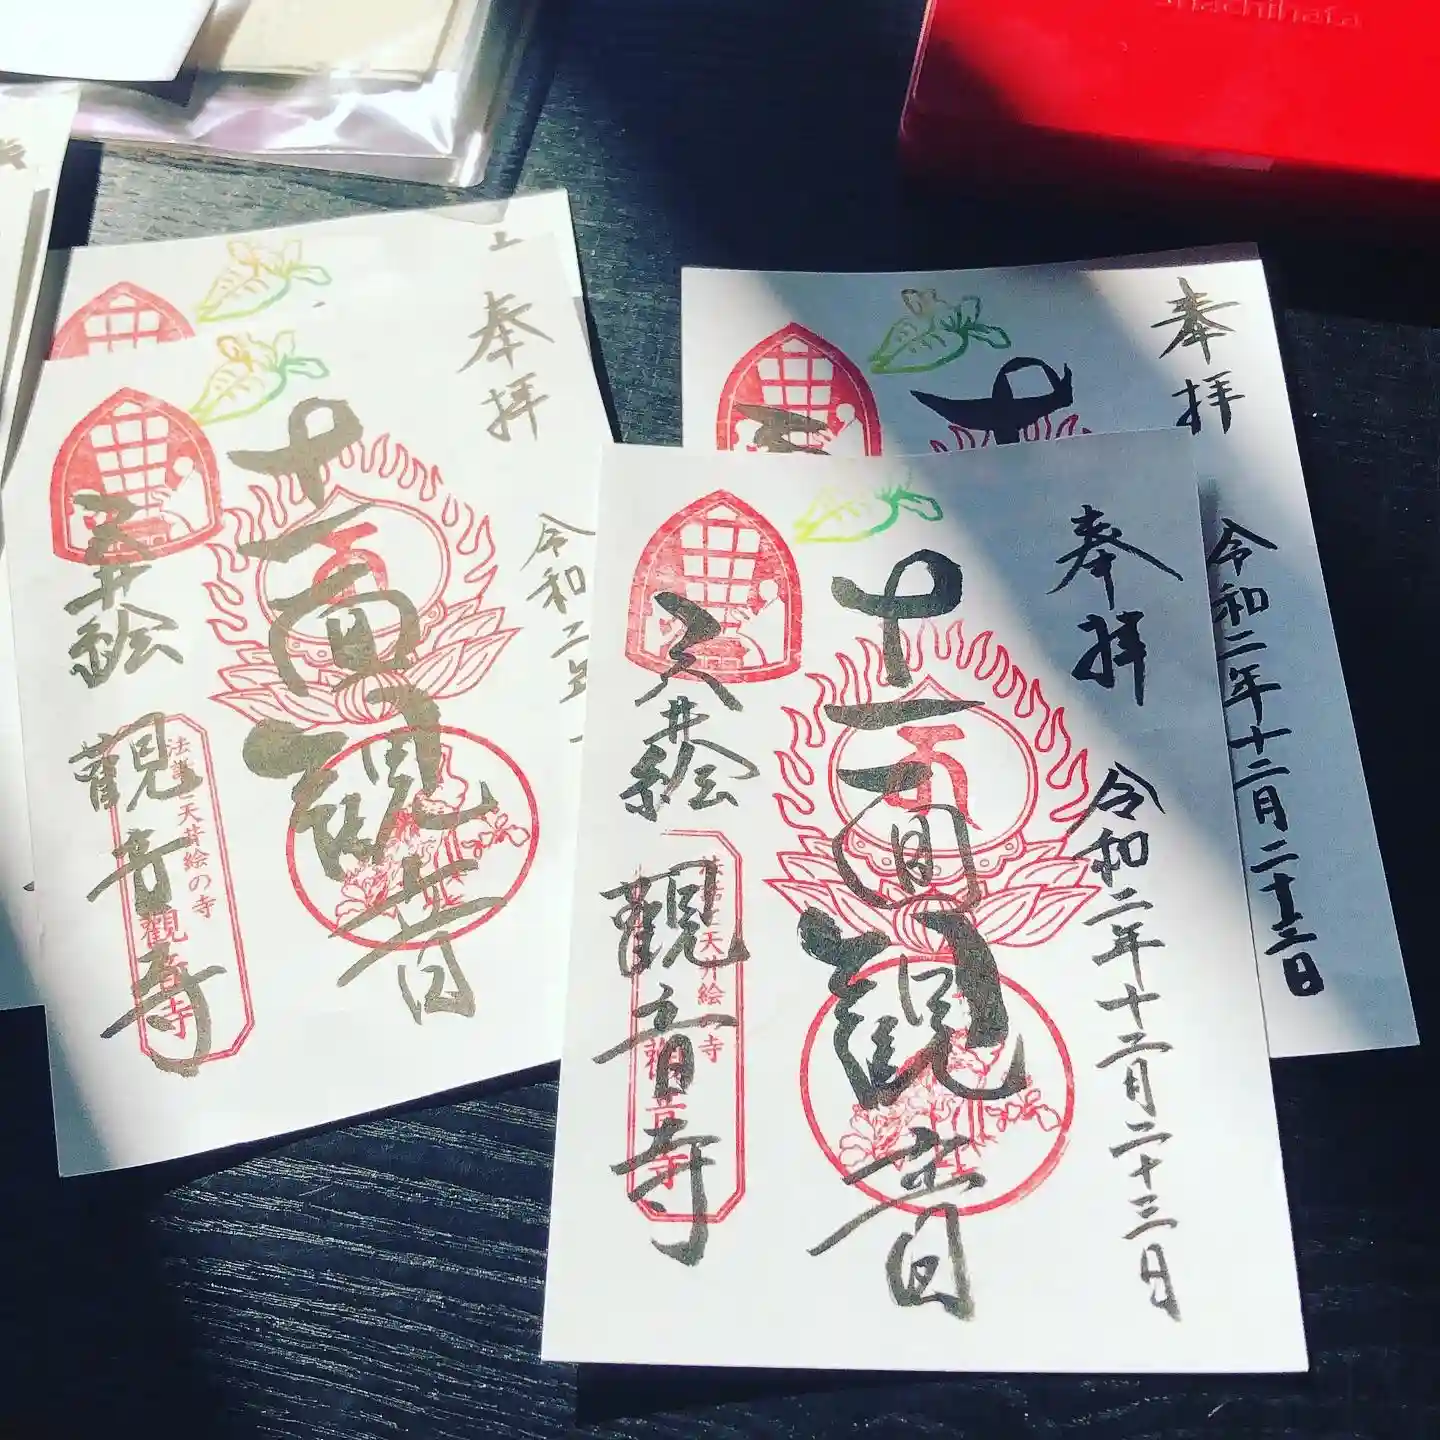 shachihata
奉拝
十一面観音
天井絵
觀音寺
法話と天井絵の寺
観音寺
令和二年
奉拝
令和二年十二月二十三日
十
天
奉拝
令和二年十二月二十三日
十一面観音
天井絵
觀音寺
法話と天井絵の寺
観音寺